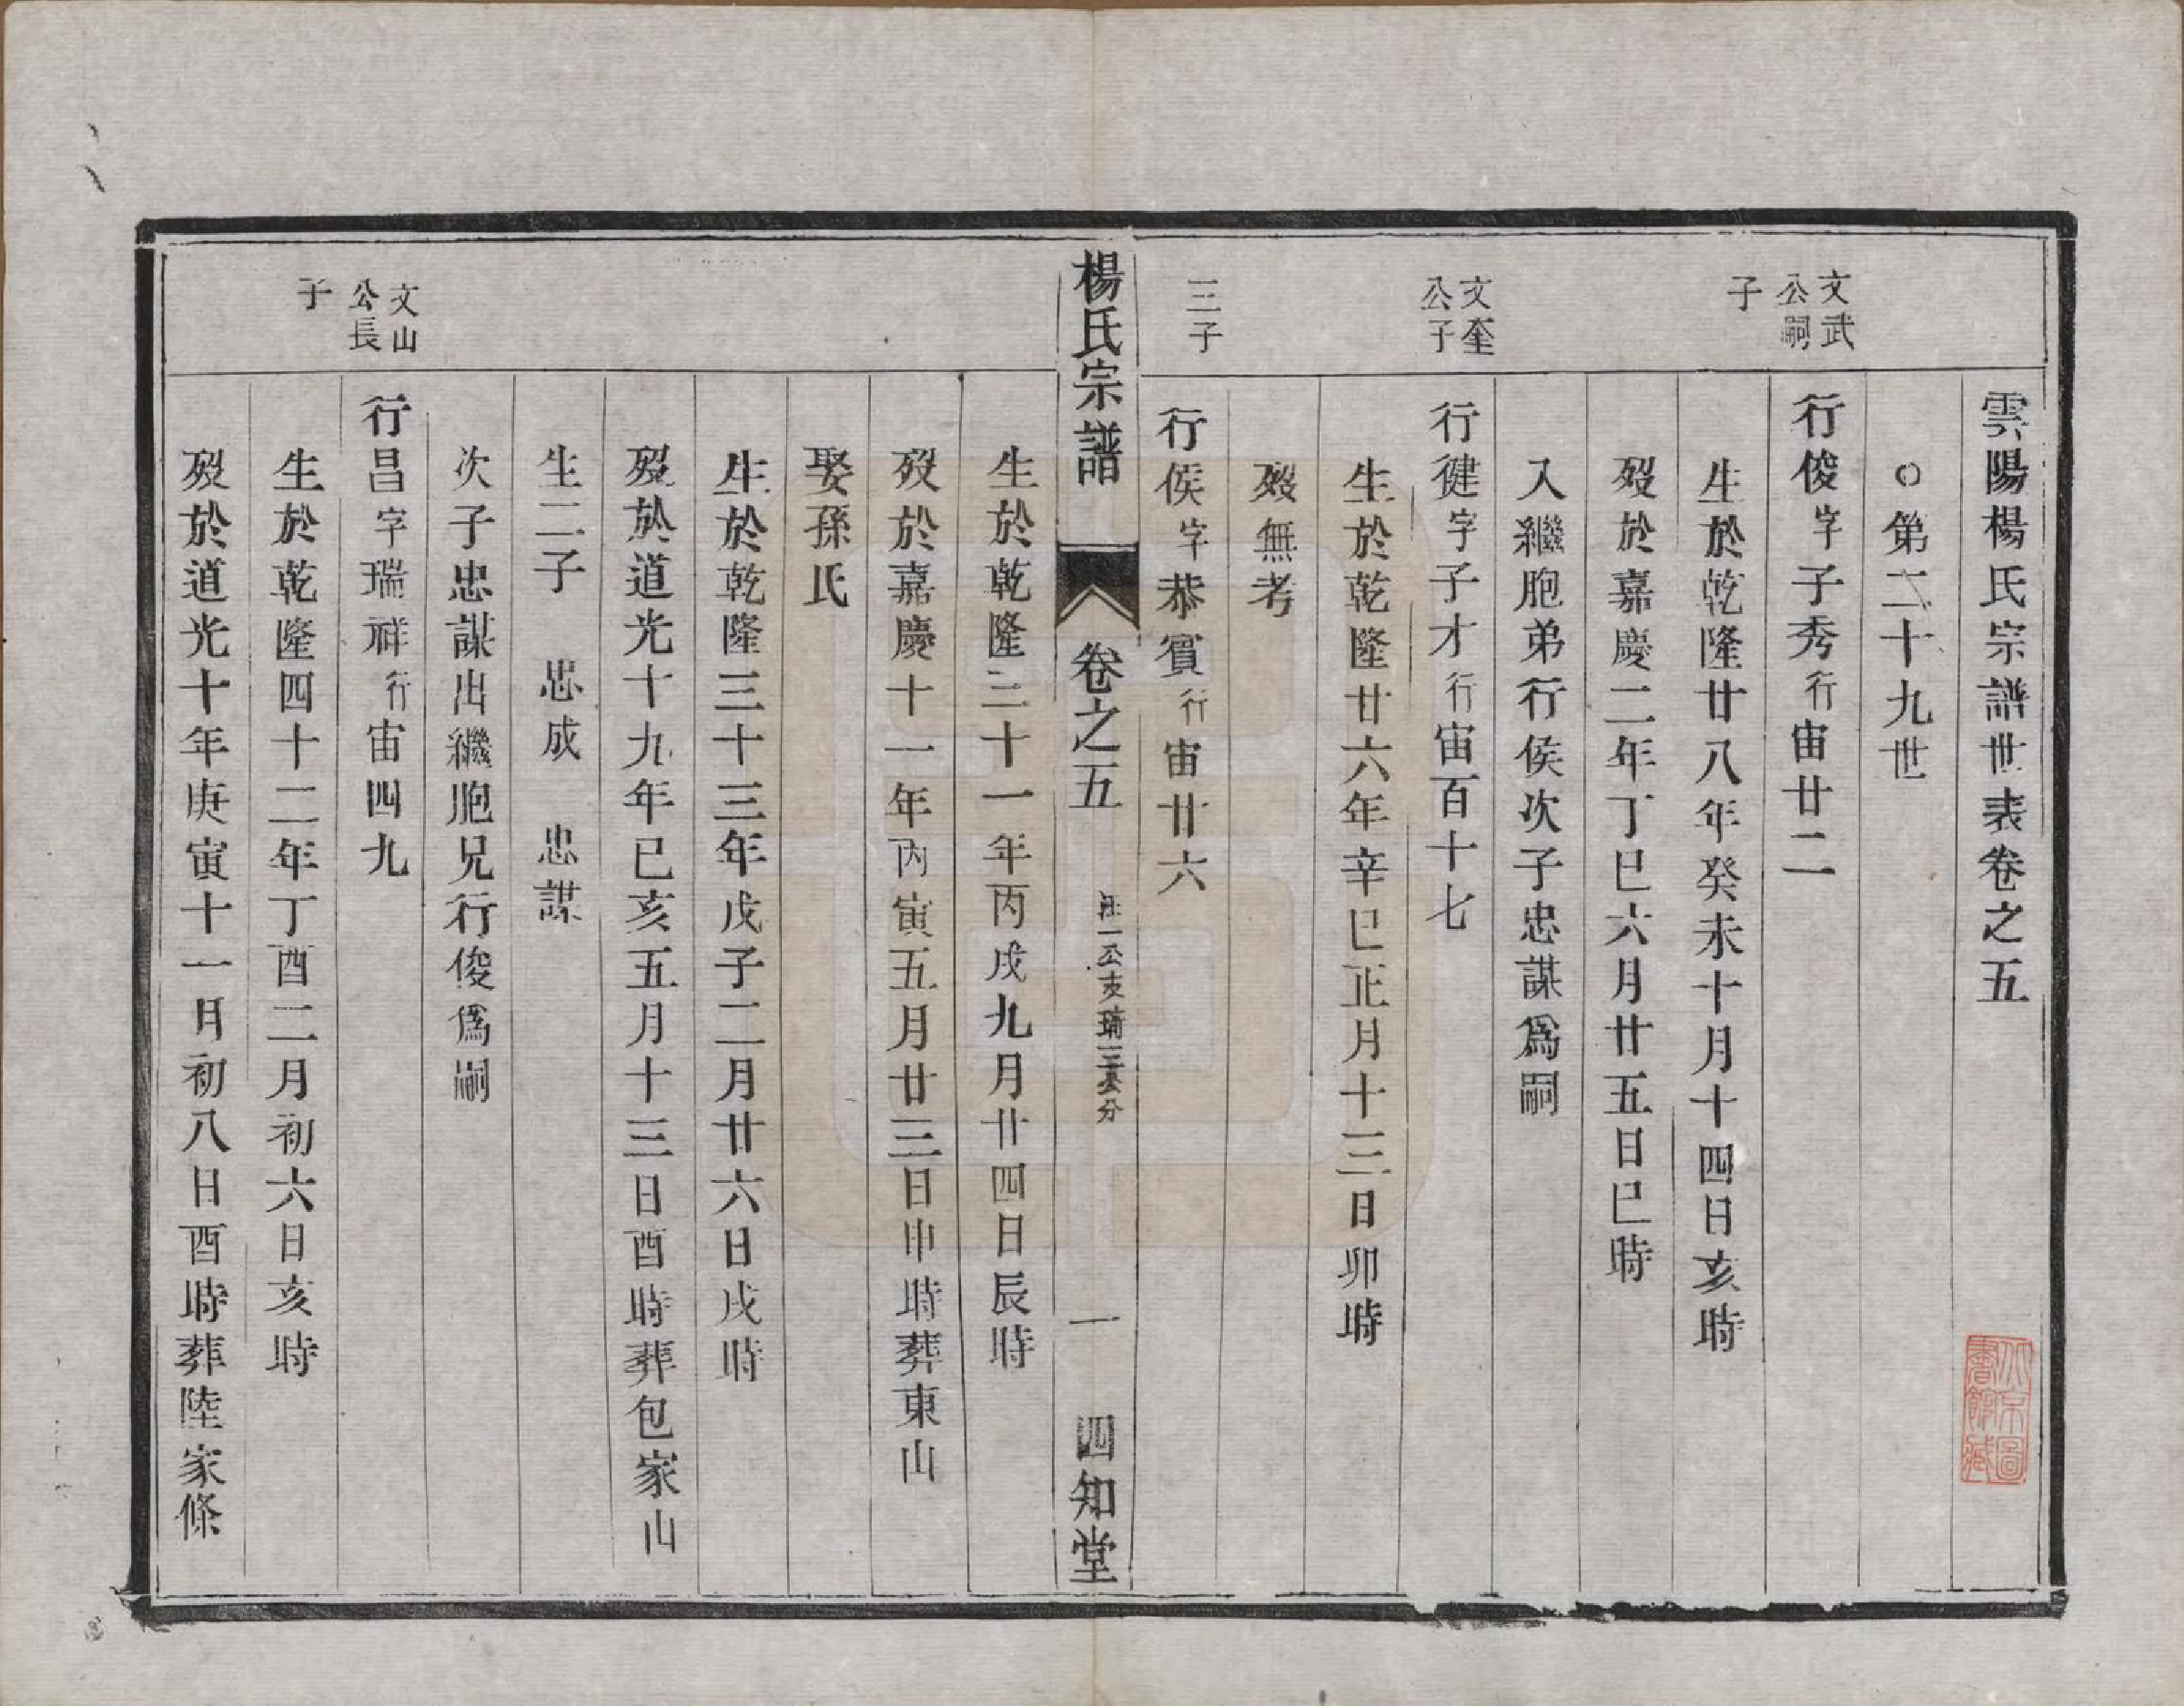 雲陽楊氏宗譜世表卷之五
○第二十九世
文武
公嗣
子
行俊字子秀行宙廿二
生於乾隆廿八年癸未十月十四日亥時
歿於嘉慶二年丁巳六月廿五日巳時
入繼胞弟行侯次子忠謀爲嗣
文奎
公子
行健字子才行宙百十七
生於乾隆廿六年辛巳正月十三日卯時
歿無考
三子
行侯字恭賓行宙廿六
楊氏宗譜 卷之五 公支 三 分 一 四知堂
生於乾隆三十一年丙戌九月廿四日辰時
歿於嘉慶十一年丙寅五月廿三日申時葬東山
娶孫氏
生於乾隆三十三年戊子二月廿六日戌時
歿於道光十九年己亥五月十三日酉時葬包家山
生二子 忠成 忠謀
次子忠謀出繼胞兄行俊爲嗣
文山
公長
子
行昌字瑞祥行宙四九
生於乾隆四十二年丁酉二月初六日亥時
歿於道光十年庚寅十一月初八日酉時葬陸家條